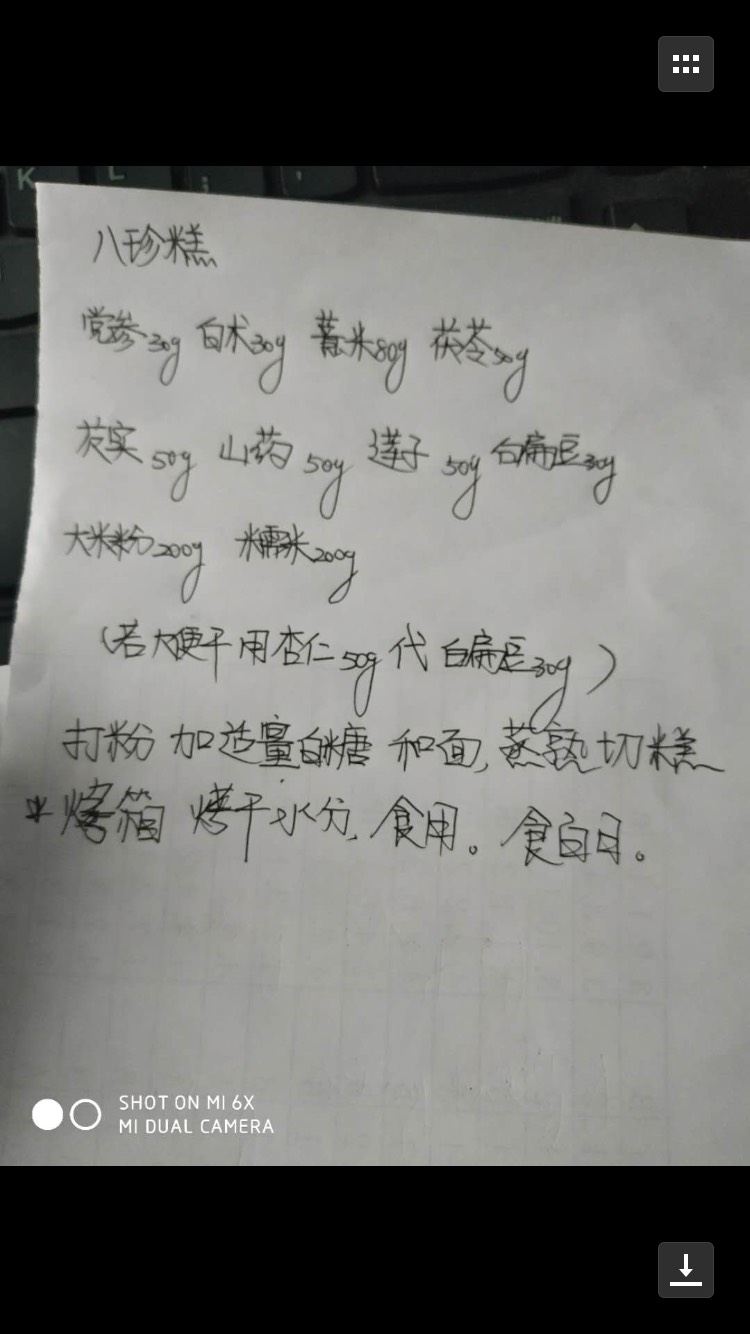 K L ; '
八珍糕
党参30g 白术30g 薏米80g 茯苓50g
芡实50g 山药50g 莲子50g 白扁豆30g
大米粉200g 糯米200g
(若大便干用杏仁50g代白扁豆30g)
打粉 加适量白糖 和面,蒸熟切糕
*烤箱 烤干水分,食用。食百日。
SHOT ON MI 6X
MI DUAL CAMERA